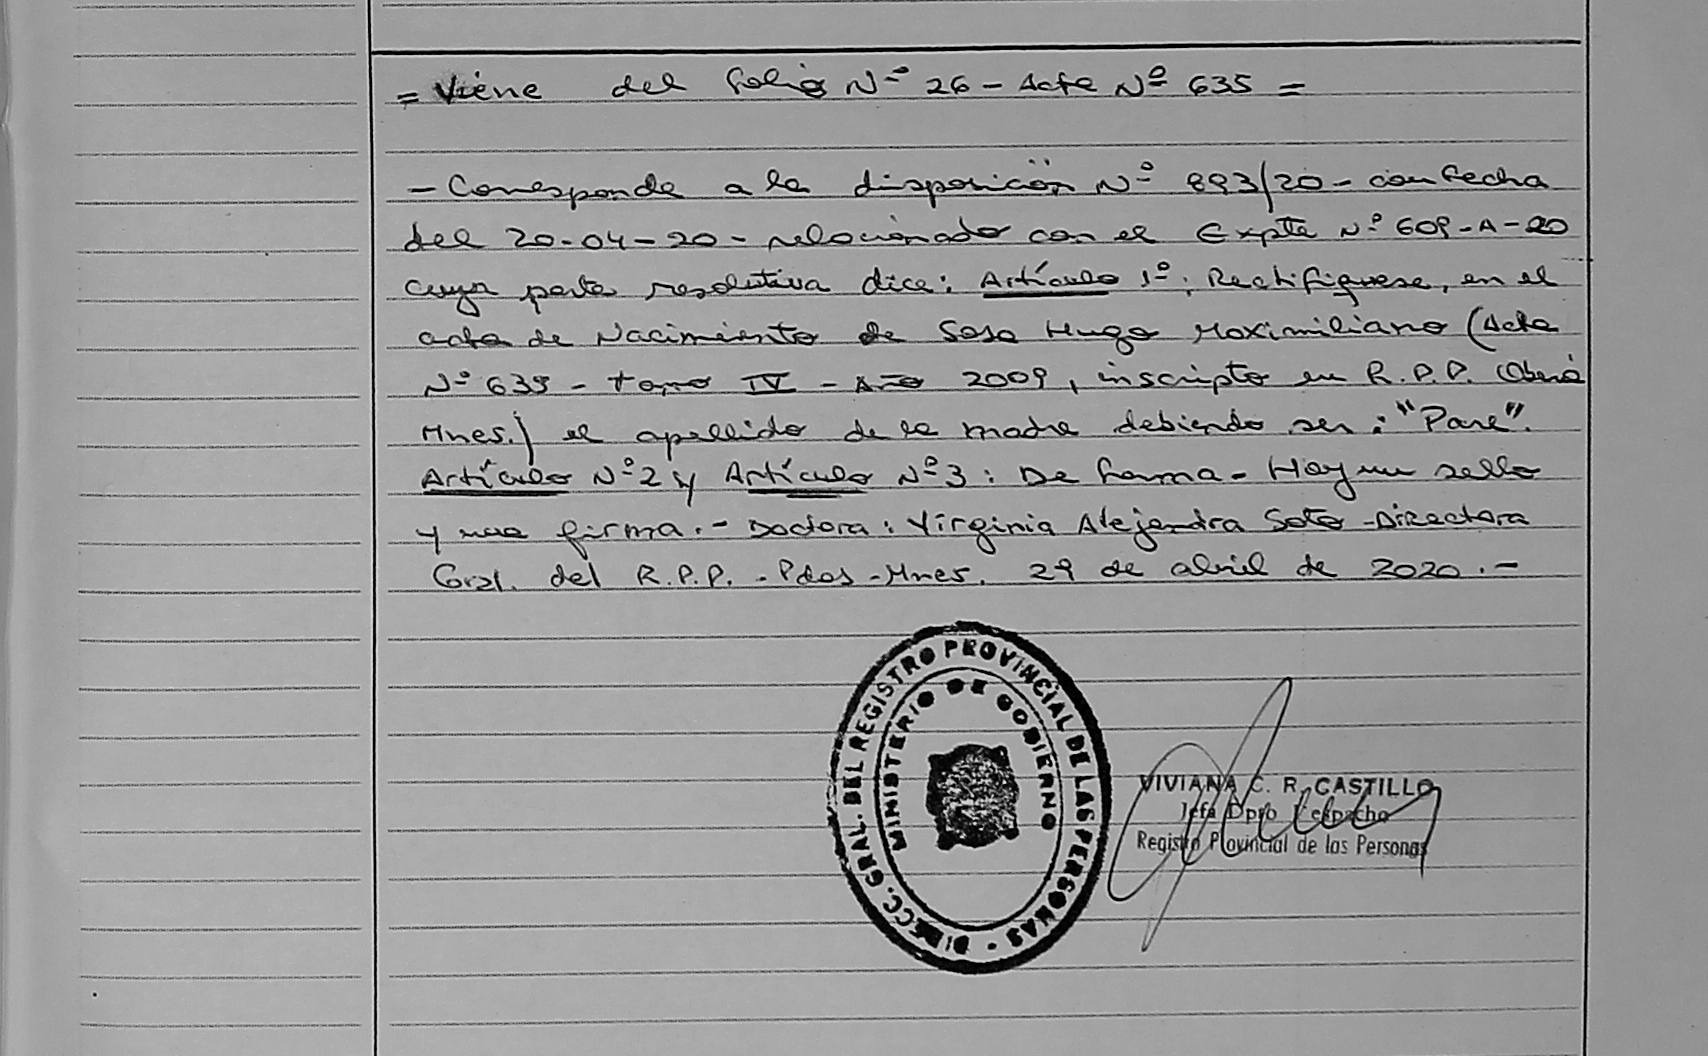 = Viene del folio Nº 26 - Acta Nº 635 =
- Corresponde a la disposición Nº 893/20 - con fecha
del 20-04-20 - relacionado con el Expte Nº 609-A-20
cuya parte resolutiva dice: Artículo 1º: Rectifiquese, en el
acta de Nacimiento de Sosa Hugo Maximiliano (Acta
Nº 635 - tomo IV - Año 2009, inscripto en R.P.P. Oberá
Mnes.) el apellido de la madre debiendo ser: "Pare".
Artículo Nº 2 y Artículo Nº 3: De forma - Hay un sello
y una firma. - Doctora: Virginia Alejandra Soto - Directora
Gral. del R.P.P. - Pdas - Mnes. 29 de abril de 2020. -
DIRECC. GRAL. DEL REGISTRO PROVINCIAL DE LAS PERSONAS -
MINISTERIO DE GOBIERNO
VIVIANA C. R. CASTILLO
Jefa Dpto Despacho
Registro Provincial de las Personas